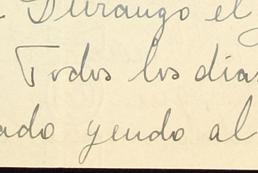 Durango el
Todos los días
ado yendo al